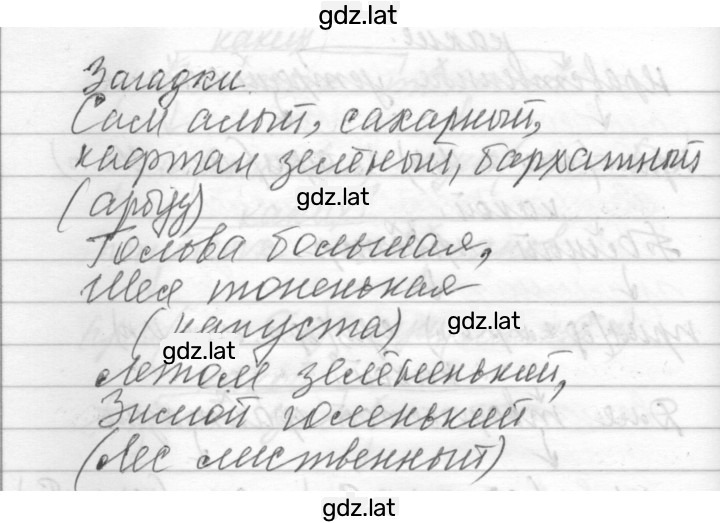 gdz.lat
Загадки.
Сам алый, сахарный,
кафтан зелёный, бархатный
(арбуз)
gdz.lat
Голова большая,
Шея тоненькая
(капуста)
gdz.lat
gdz.lat
Летом зелёненький,
Зимой голенький
(Лес лиственный)
gdz.lat